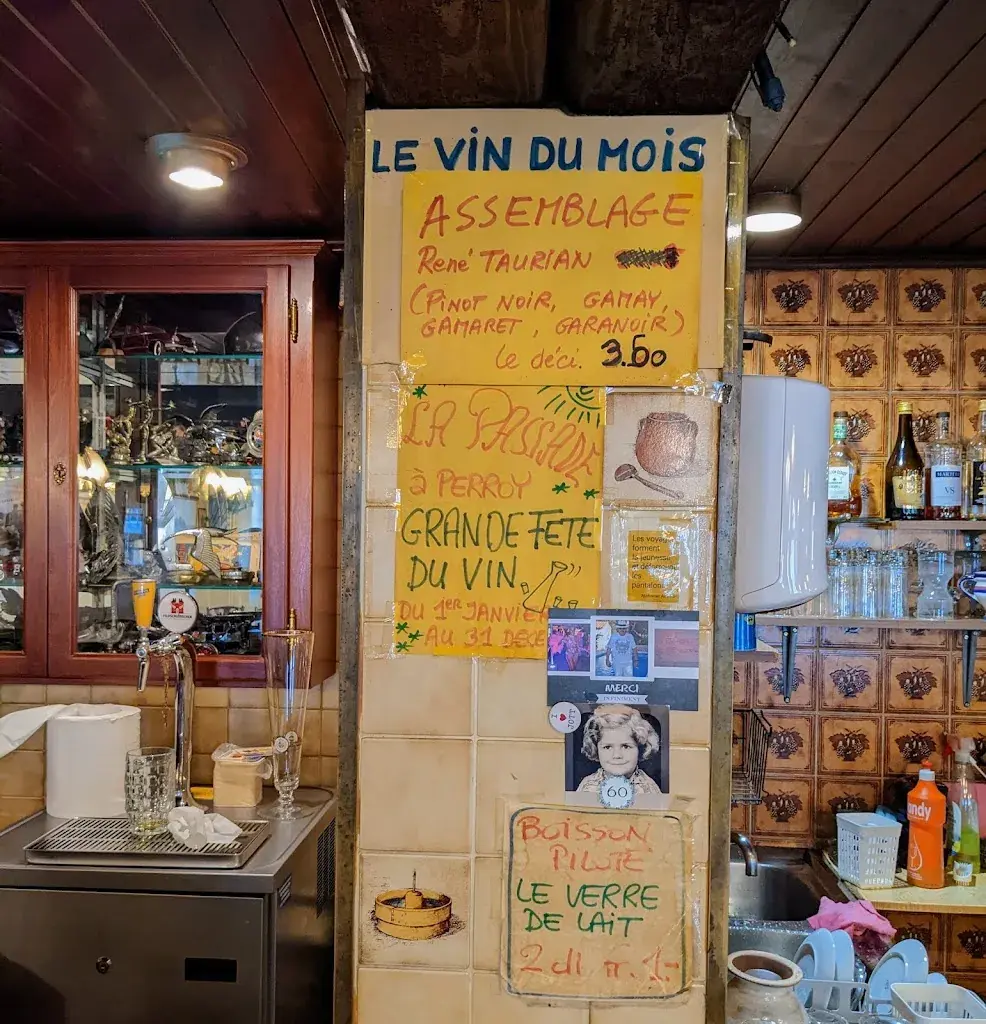 LE VIN DU MOIS
ASSEMBLAGE
René TAURIAN
(PINOT NOIR, GAMAY,
GAMARET, GARANOIR)
le déci. 3.60
LA PASSADE
à PERROY
GRANDE FETE
DU VIN
DU 1ER JANVIER
AU 31 DECE
Les voyages
forment
la jeunesse
et déforment
les
pantalons
MERCI
I ❤
60
BOISSON
PILOTE
LE VERRE
DE LAIT
2 dl fr. 1.-
MARTELL
VS
andy